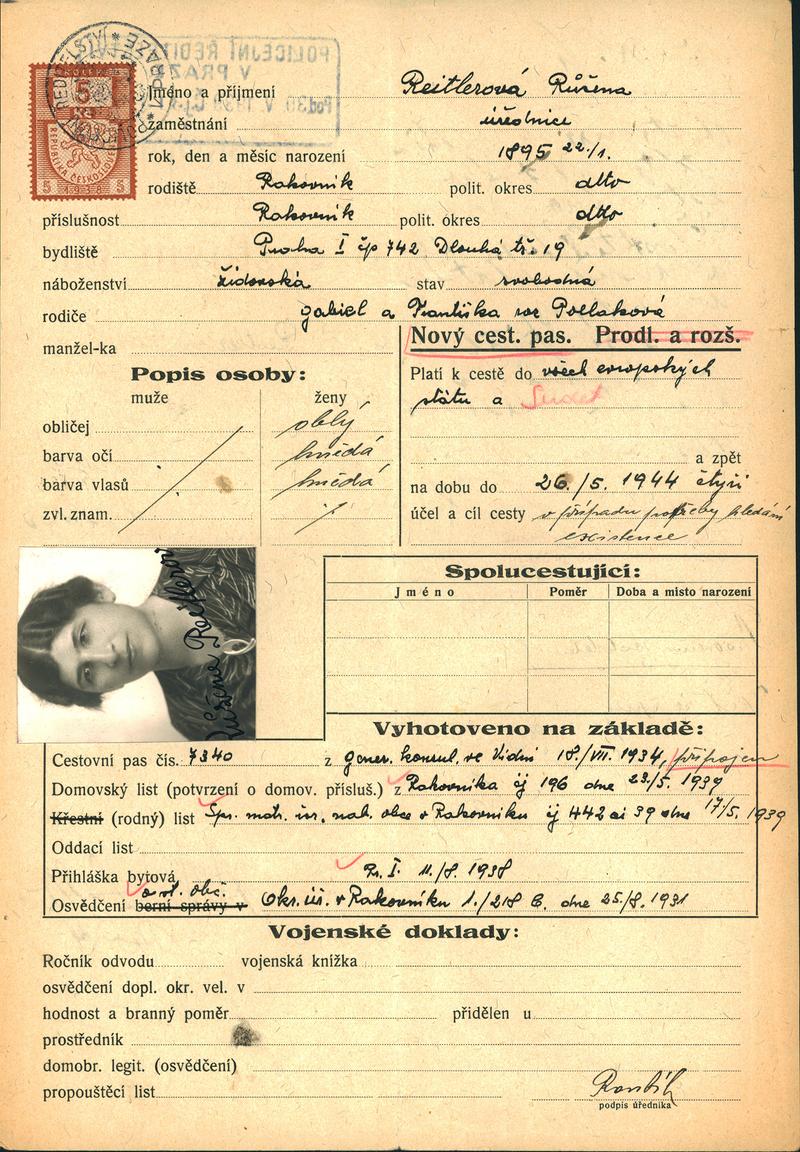 POLICEJNÍ ŘEDITELSTVÍ
V PRAZE
KOLEK
5
Kč
REPUBLIKA ČESKOSLOVENSKÁ
5 1938 5
Jméno a příjmení Reitlerová Růžena
zaměstnání úřednice
rok, den a měsíc narození 1895 22/1.
rodiště Rakovník polit. okres dtto
příslušnost Rakovník polit. okres dtto
bydliště Praha I čp 742 Dlouhá tř. 19
náboženství židovská stav svobodná
rodiče Gabiel a Františka roz Pollaková
manžel-ka
Nový cest. pas. Prodl. a rozš.
Popis osoby:
muže ženy
obličej oblý
barva očí hnědá
barva vlasů hnědá
zvl. znam.
Platí k cestě do všech evropských
států a Sudet
a zpět
na dobu do 26./5. 1944 čtyři
účel a cíl cesty v případu potřeby hledání
existence
Růžena Reitlerová
Spolucestující:
Jméno Poměr Doba a místo narození
Vyhotoveno na základě:
Cestovní pas čís. 7340 z gener. konsul. ve Vídni 18/VII. 1934, připojen
Domovský list (potvrzení o domov. přísluš.) z Rakovníka čj 196 dne 23/5. 1939
Křestní (rodný) list Spr. matr. úř. nab. obce v Rakovníku čj 442 ai 39 dne 17/5. 1939
Oddací list
Přihláška bytová Pr. I. 11./8. 1938
o st. obč.
Osvědčení berní správy v Okr. úř. v Rakovníku 1./218 C. dne 25/8. 1931
Vojenské doklady:
Ročník odvodu vojenská knížka
osvědčení dopl. okr. vel. v
hodnost a branný poměr přidělen u
prostředník
domobr. legit. (osvědčení)
propouštěcí list
podpis úředníka